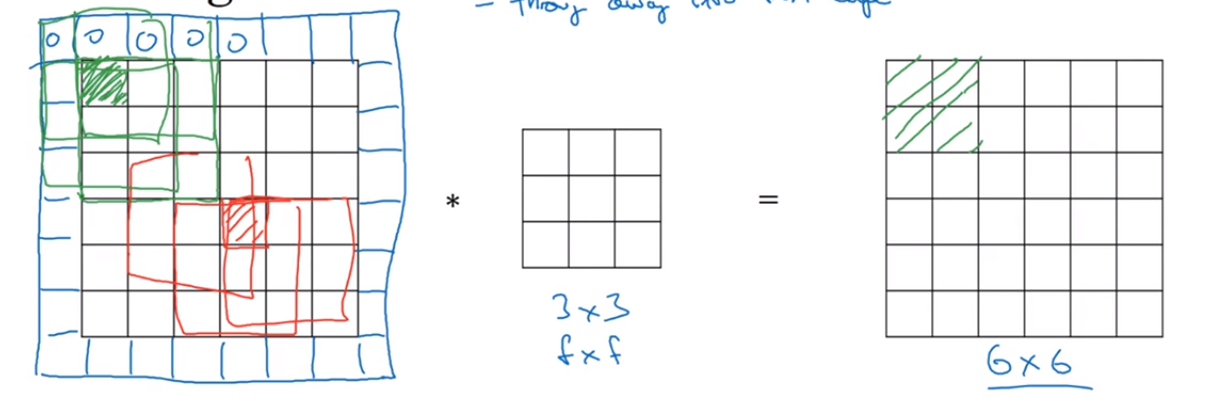 - throw away info from edge
0 0 0 0 0
* =
3 × 3
f × f
6 × 6